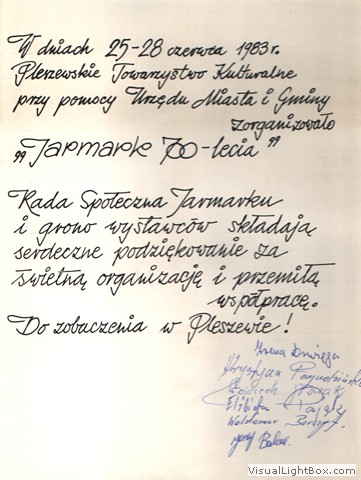 W dniach 25-28 czerwca 1983 r.
Pleszewskie Towarzystwo Kulturalne
przy pomocy Urzędu Miasta i Gminy
zorganizowało
„Jarmark 700-lecia”
Rada Społeczna Jarmarku
i grono wystawców składają
serdeczne podziękowanie za
świetną organizację i przemiłą
współpracę.
Do zobaczenia w Pleszewie!
Krystyna
Wojciech
Elżbieta
Waldemar
VisualLightBox.com